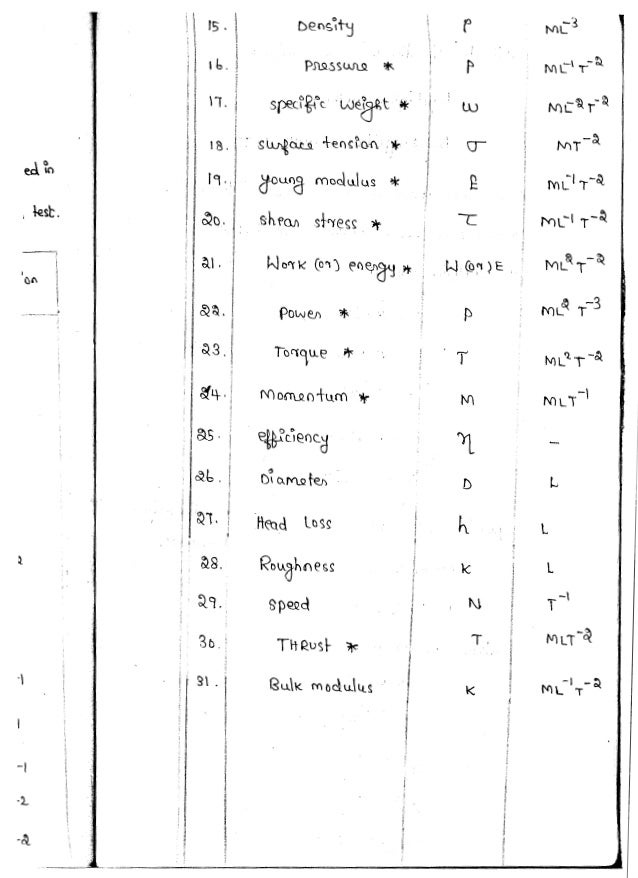 15. Density ρ ML⁻³
16. Pressure * P ML⁻¹T⁻²
17. specific weight * w ML⁻²T⁻²
18. surface tension * σ MT⁻²
19. young modulus * E ML⁻¹T⁻²
20. shear stress * τ ML⁻¹T⁻²
21. Work (or) energy * W (or) E ML²T⁻²
22. Power * P ML²T⁻³
23. Torque * T ML²T⁻²
24. Momentum * M MLT⁻¹
25. efficiency η –
26. Diameter D L
27. Head Loss h L
28. Roughness K L
29. speed N T⁻¹
30. THRust * T. MLT⁻²
31. Bulk modulus K ML⁻¹T⁻²
ed in
test.
on
2
-1
1
-1
-2
-2